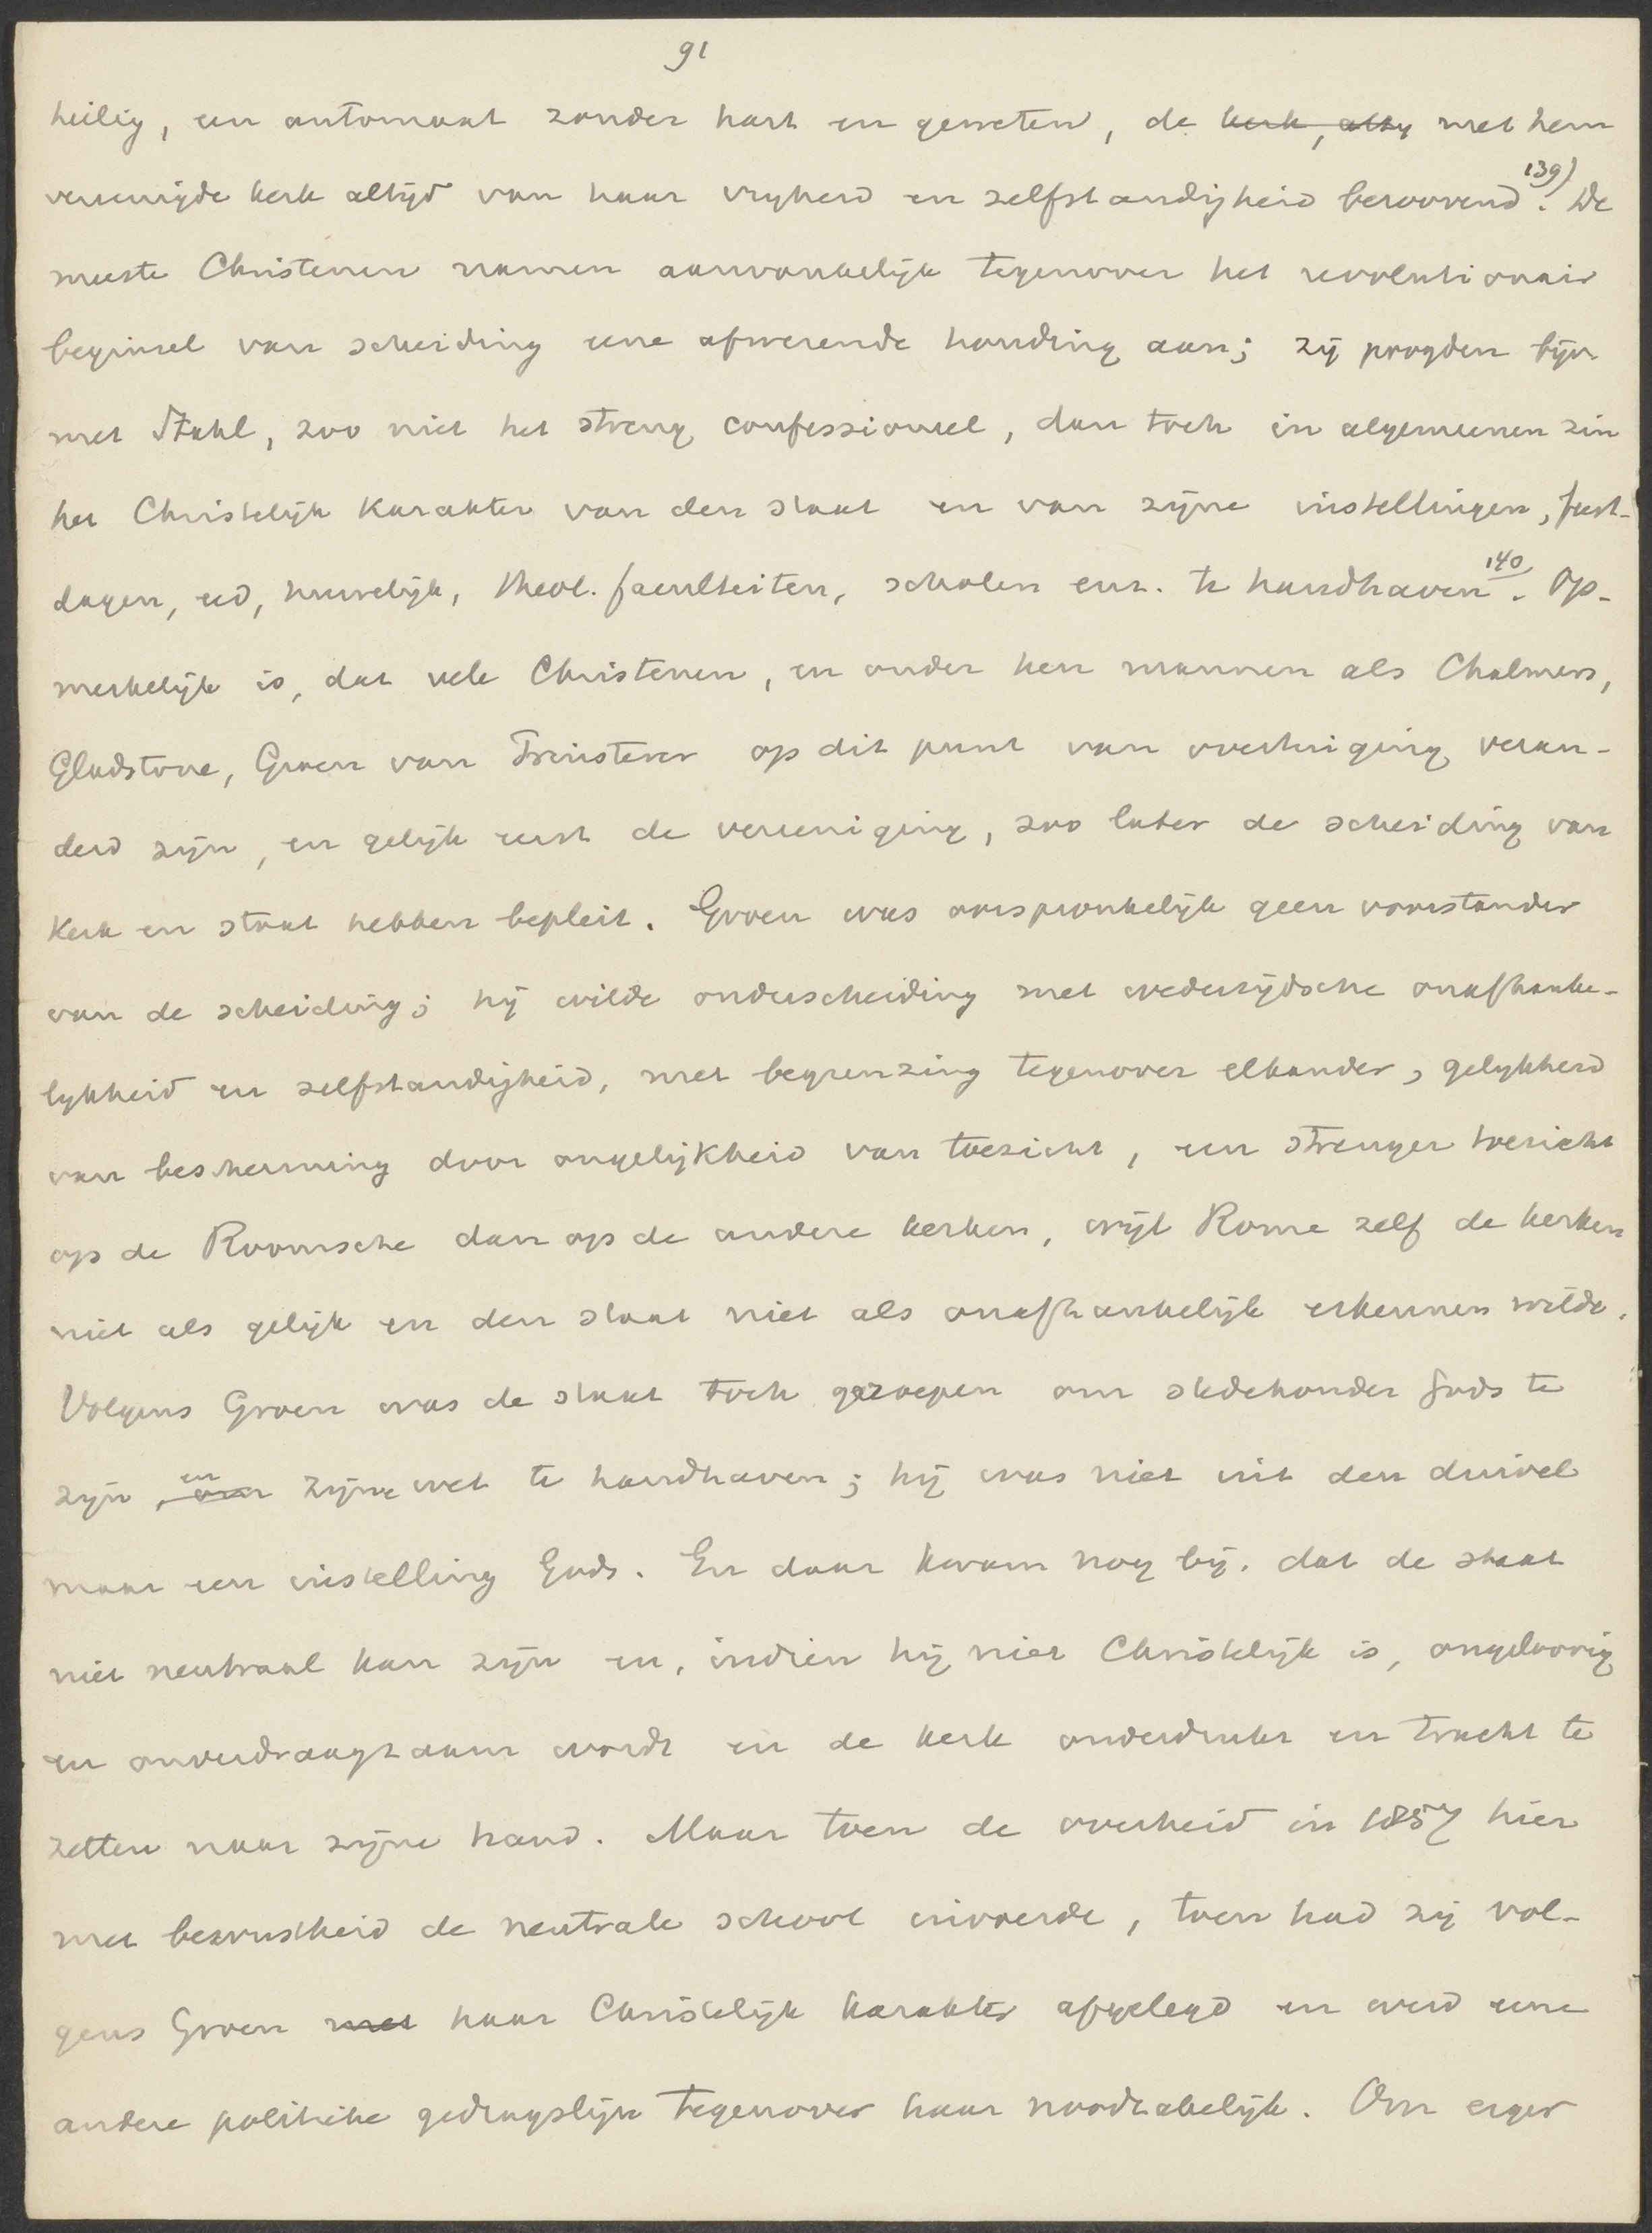 91
heilig, een automaat zonder hart en geweten, de kerk, altij met hem
vereenigde kerk altijd van haar vrijheid en zelfstandigheid beroovend. 139) De
meeste Christenen namen aanvankelijk tegenover het revolutionair
beginsel van scheiding eene afwerende houding aan; zij poogden bijv.
met Stahl, zoo niet het streng confessioneel, dan toch in algemeenen zin
het Christelijk karakter van den staat en van zijne instellingen, feest-
dagen, eed, huwelijk, theol. faculteiten, scholen enz. te handhaven 140. Op-
merkelijk is, dat vele Christenen, en onder hen mannen als Chalmers,
Gladstone, Groen van Prinsterer op dit punt van overtuiging veran-
derd zijn, en gelijk eerst de vereeniging, zoo later de scheiding van
kerk en staat hebben bepleit. Groen was oorspronkelijk geen voorstander
van de scheiding; hij wilde onderscheiding met wederzijdsche onafhanke-
lijkheid en zelfstandigheid, met begrenzing tegenover elkander, gelijkheid
van bescherming door ongelijkheid van toezicht, een strenger toezicht
op de Roomsche dan op de andere kerken, wijl Rome zelf de kerken
niet als gelijk en den staat niet als onafhankelijk erkennen wilde.
Volgens Groen was de staat toch geroepen om stedehouder Gods te
zijn, om en zijne wet te handhaven; hij was niet uit den duivel
maar een instelling Gods. En daar kwam nog bij, dat de staat
niet neutraal kan zijn en, indien hij niet Christelijk is, ongeloovig
en onverdraagzaam wordt en de kerk onderdrukt en tracht te
zetten naar zijne hand. Maar toen de overheid in 1857 hier
met bewustheid de neutrale school invoerde, toen had zij vol-
gens Groen met haar Christelijk karakter afgelegd en werd eene
andere politieke gedragslijn tegenover haar noodzakelijk. Om erger